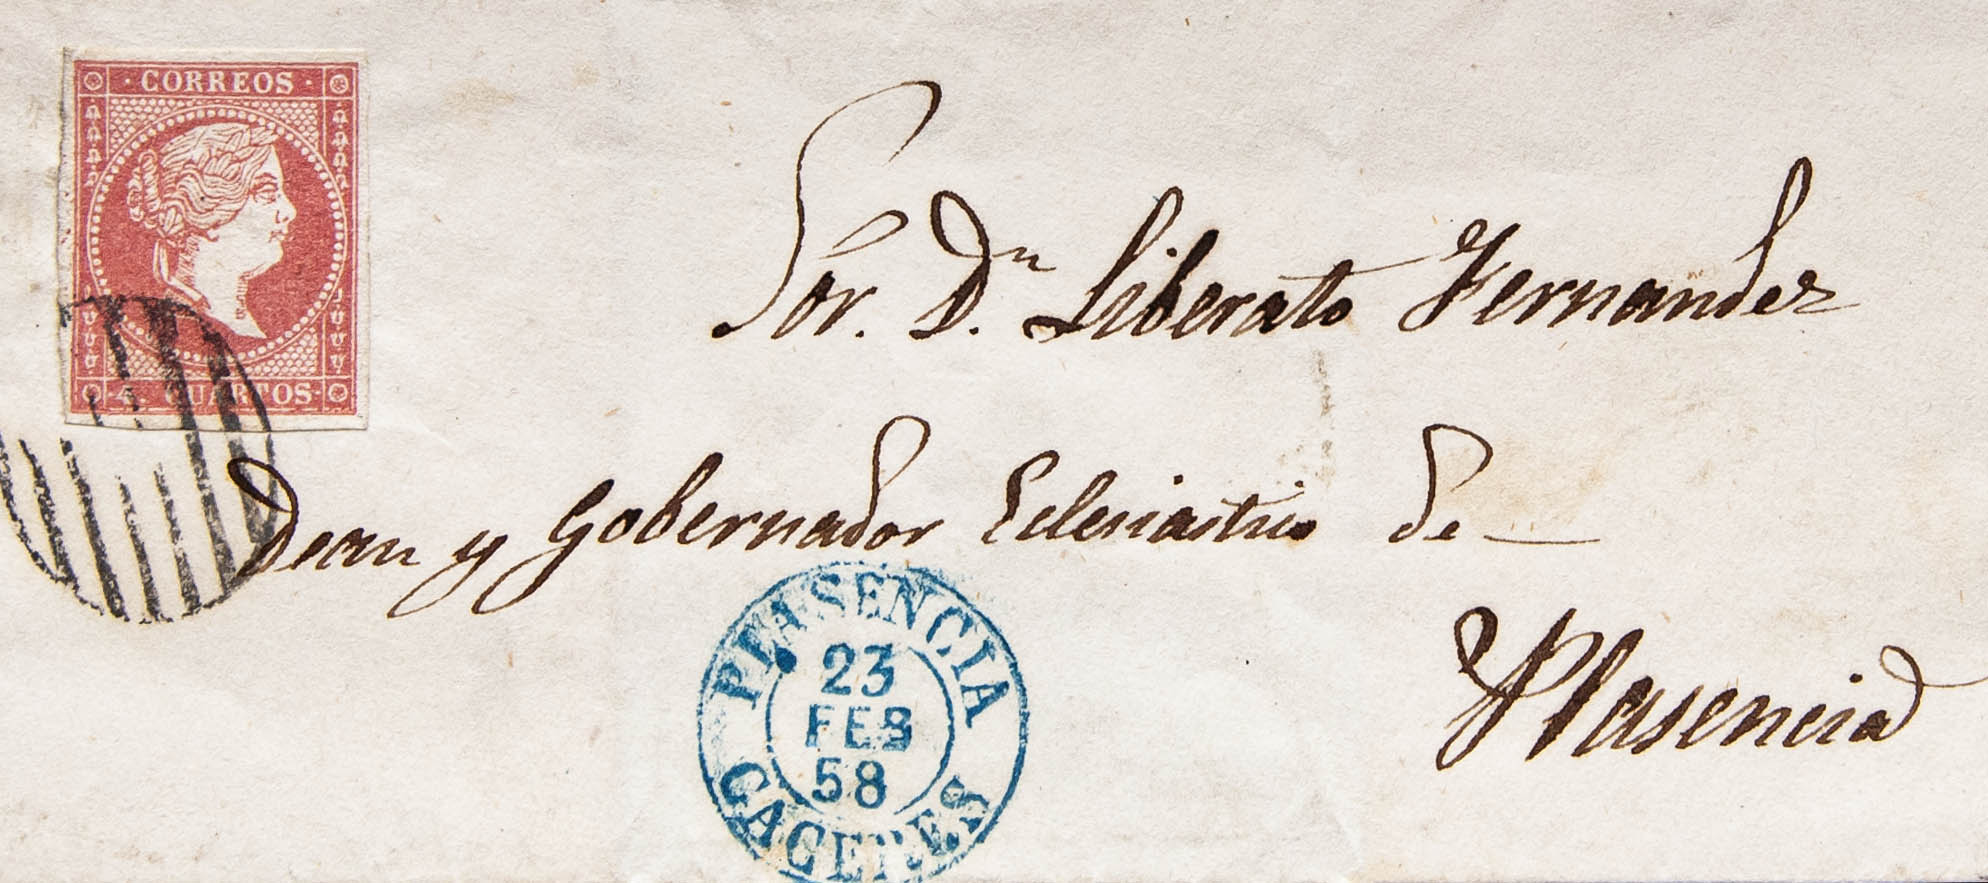 · CORREOS ·
4. CUARTOS·
Sor. Dn. Liberato Fernandez
Dean y Gobernador Eclesiastico de —
Plasencia
PLASENCIA
23
FEB
58
CACERES